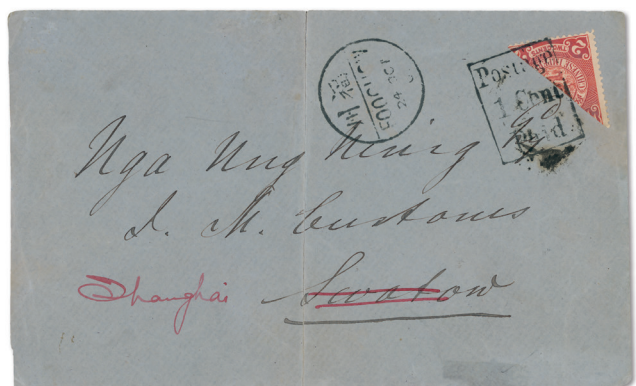 FOOCHOW
24 OCT
2
Postage
1 Cent
Paid.
Nga Nung
I. M. Customs
Shanghai Swatow